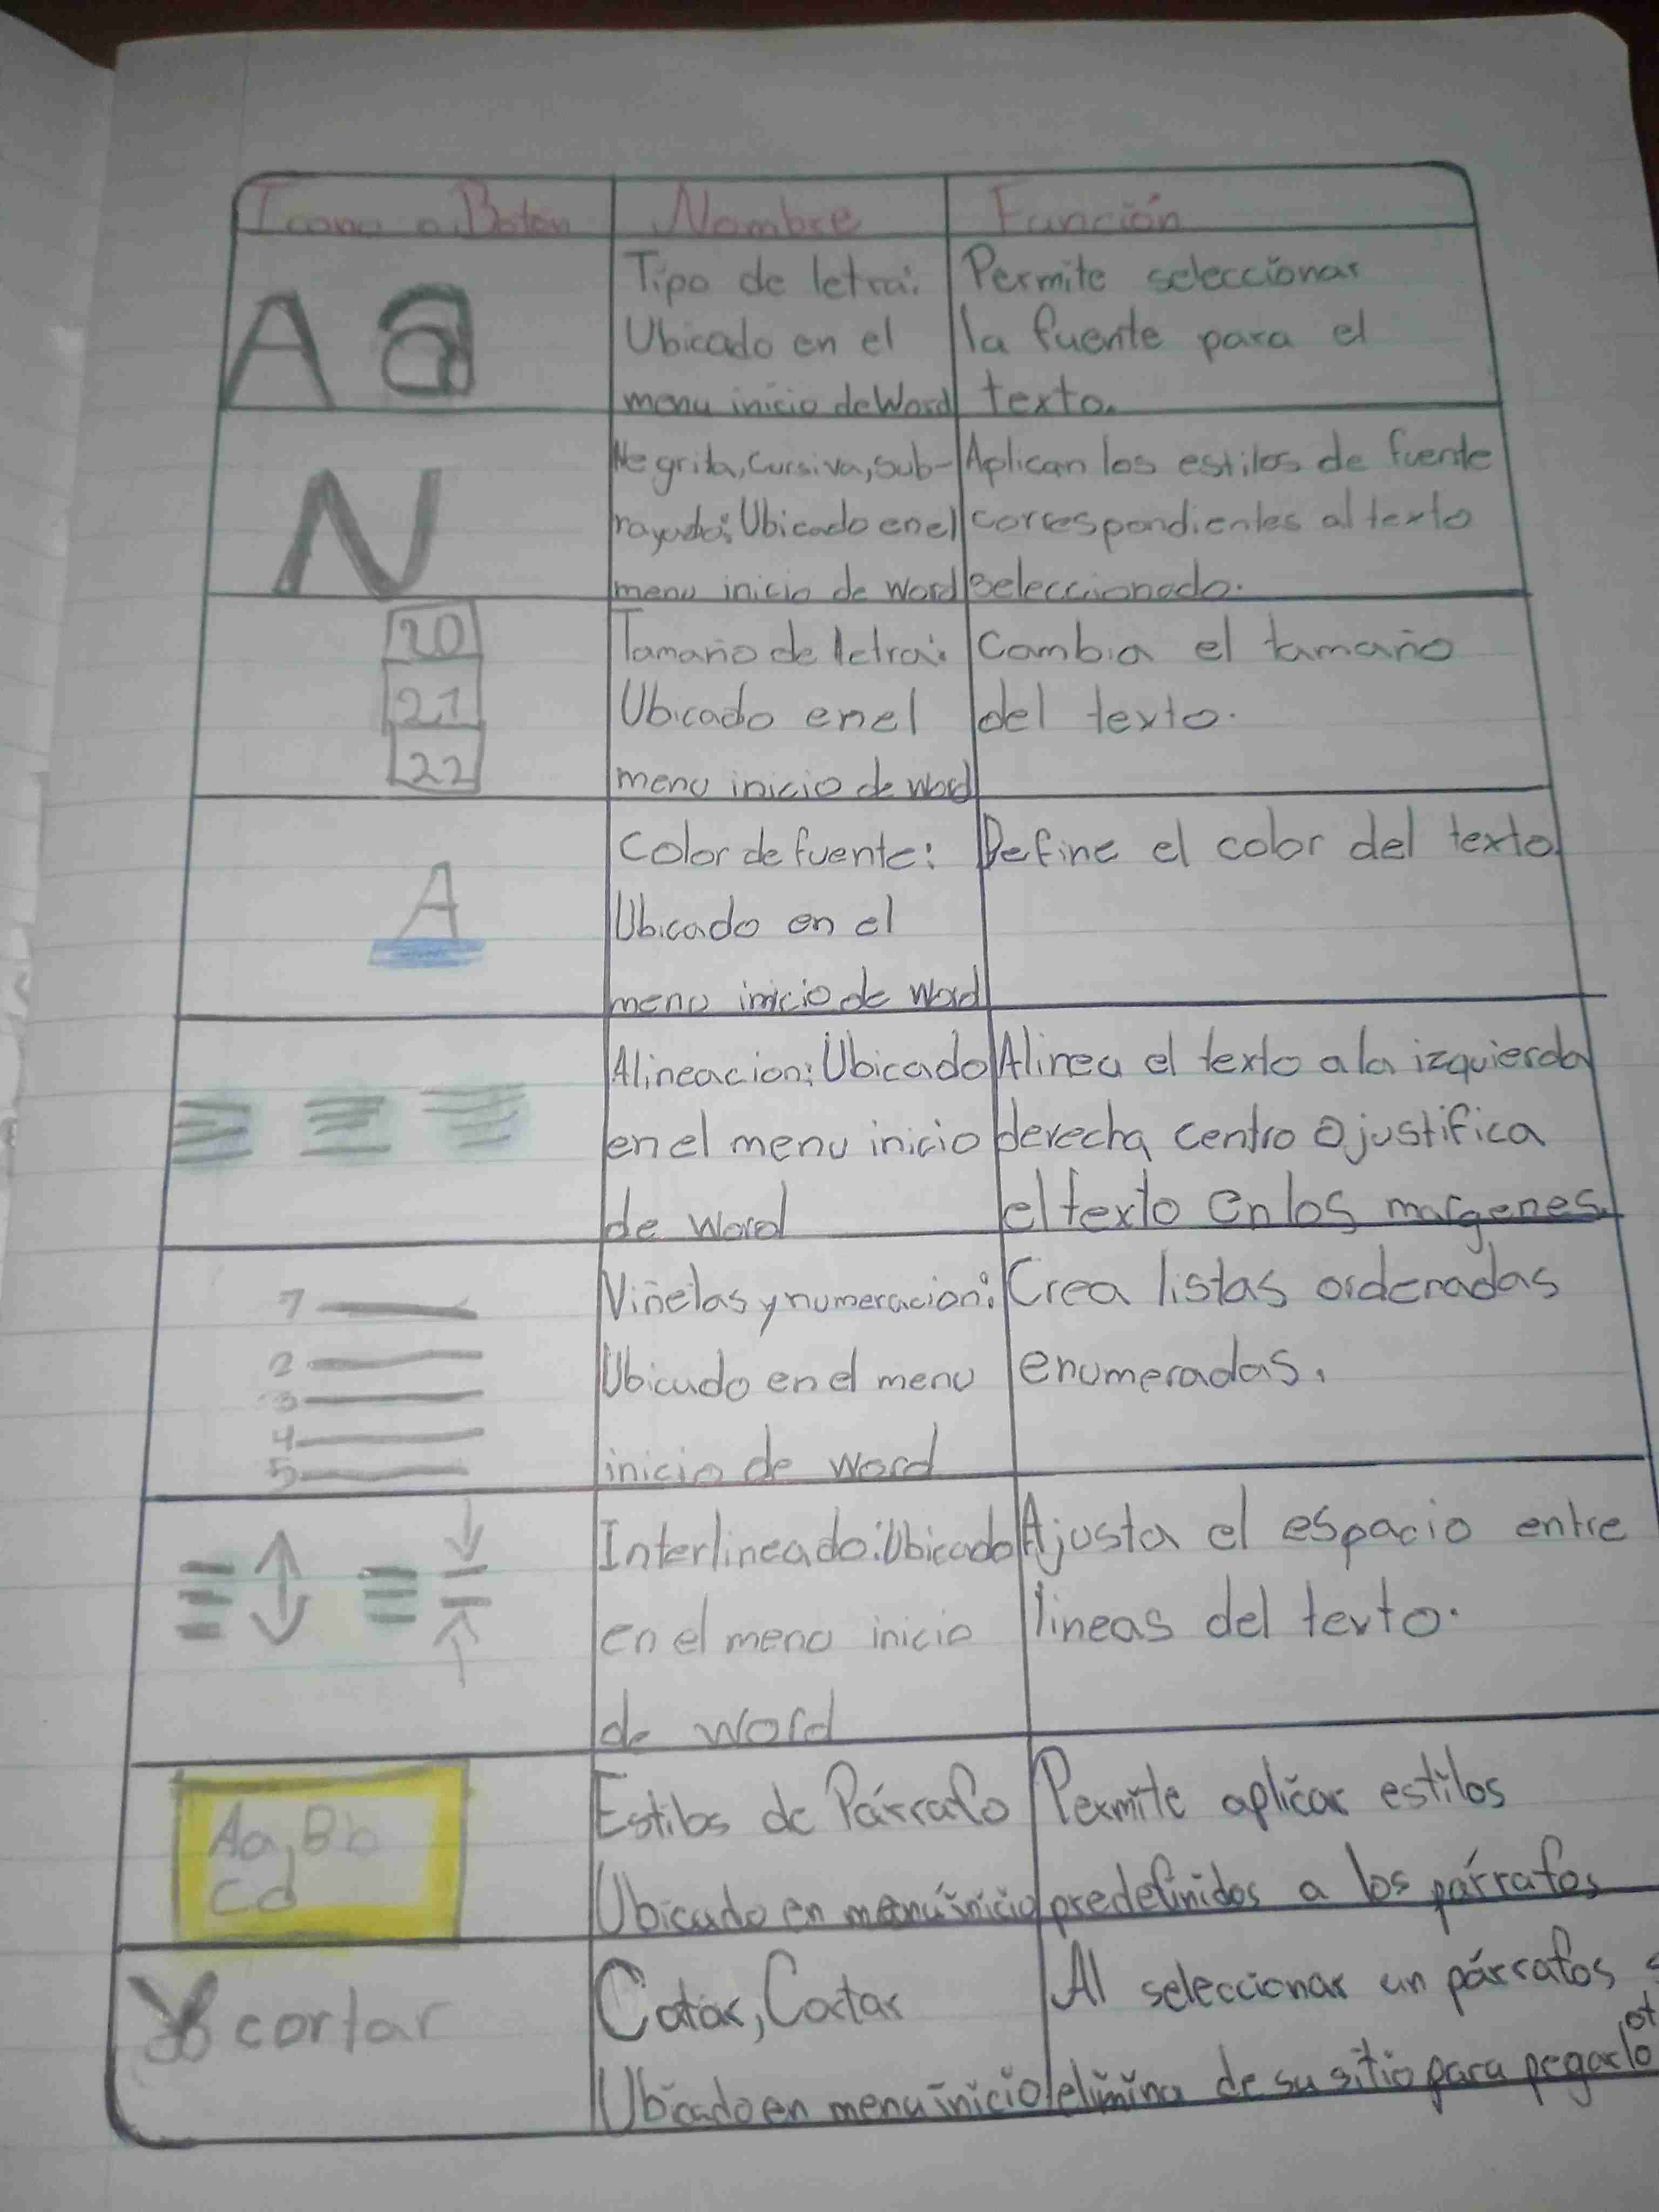 Icono o Botón
Nombre
Función
A a
Tipo de letra:
Ubicado en el
menu inicio de Word
Permite seleccionar
la fuente para el
texto.
N
Negrita, Cursiva, sub-
rayado: Ubicado en el
menu inicio de Word
Aplican los estilos de fuente
correspondientes al texto
seleccionado.
20
21
22
Tamaño de letra:
Ubicado en el
menu inicio de Word
Cambia el tamaño
del texto.
A
Color de fuente:
Ubicado en el
menu inicio de Word
Define el color del texto.
Alineacion: Ubicado
en el menu inicio
de Word
Alinea el texto a la izquierda
derecha, centro o justifica
el texto en los margenes.
1
2
3
4
5
Viñetas y numeracion:
Ubicado en el menu
inicio de Word
Crea listas ordenadas
enumeradas.
Interlineado: Ubicado
en el menu inicio
de Word
Ajusta el espacio entre
lineas del texto.
Aa, Bb
Cd
Estilos de Párrafo
Ubicado en menú inicio
Permite aplicar estilos
predefinidos a los párrafos
cortar
Cortar
Ubicado en menu inicio
Al seleccionar un párrafos
elimina de su sitio para pegarlo